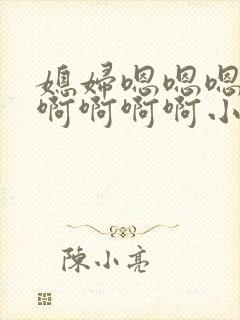 媳婦嗯嗯嗯
啊啊啊啊小
陳小亮